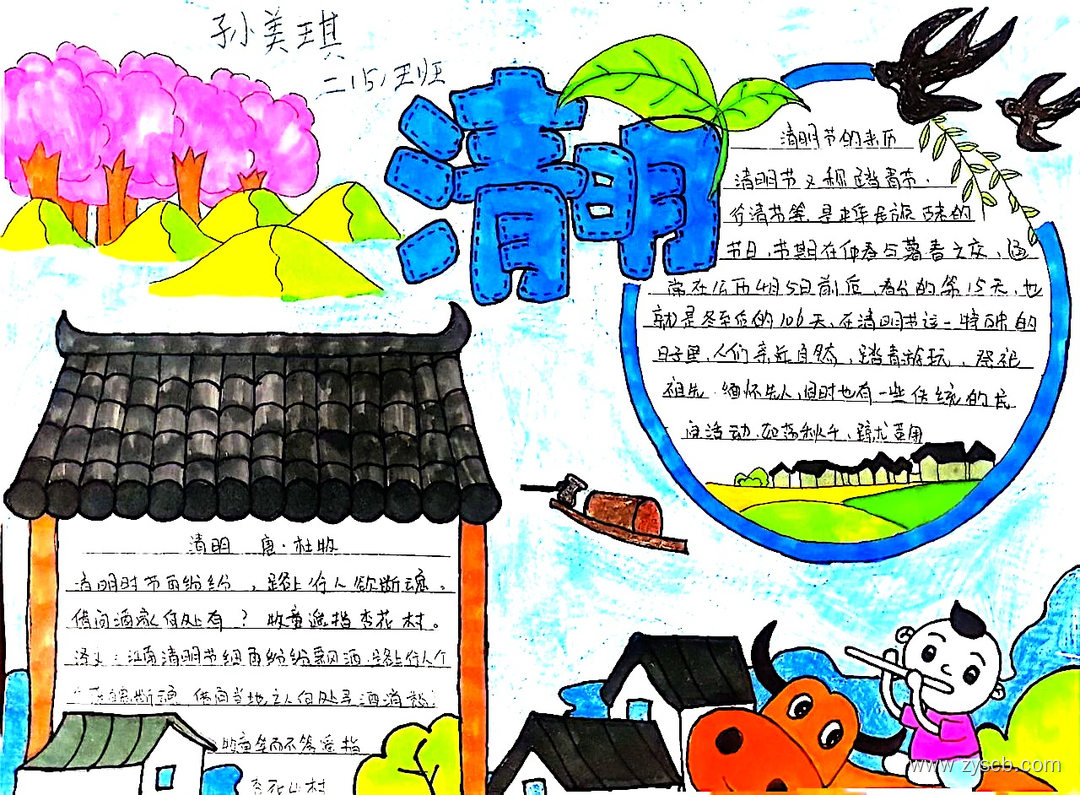 孙美琪
二(5)班
清明
清明节的来历
清明节又称踏青节、
节日，节期在仲春与暮春之交，通
常在公历4月5日前后，春分的第15天，也
就是冬至后的106天，在清明节这一特殊的
日子里，人们亲近自然，踏青游玩、祭祀
祖先、缅怀先人，同时也有一些传统的民
间活动，如荡秋千、蹴
清明 唐·杜牧
清明时节雨纷纷，路上行人欲断魂。
借问酒家何处有？牧童遥指杏花村。
译文：江南清明节细雨纷纷飘洒，路上行人个
断魂 借问当地之人何处 酒消愁
牧童笑而不答遥指
杏花山村
www.zyseb.com